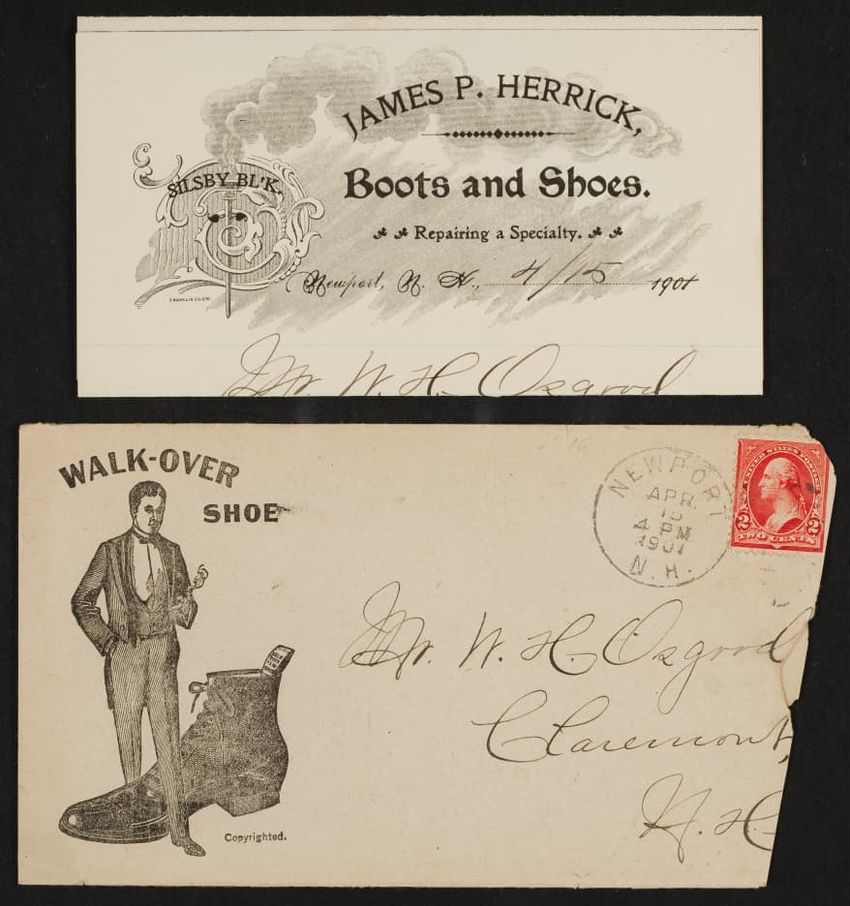 JAMES P. HERRICK,
SILSBY BL'K.
Boots and Shoes.
Repairing a Specialty.
Newport, N. H., 4/15 1901
FRANKLIN CO. CHI.
Mr. W. H. Osgood
WALK-OVER
SHOE
Copyrighted.
NEWPORT
APR.
15
4 PM
1901
N.H.
UNITED STATES POSTAGE
2 2
TWO CENTS
Mr. W. H. Osgood
Claremont,
N. H.